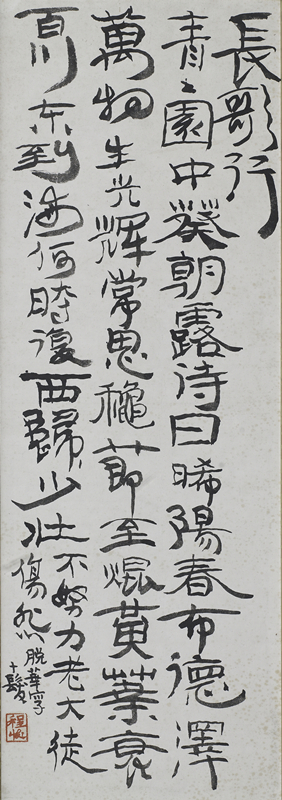 長歌行
青々園中葵朝露待日晞陽春布德澤
萬物生光輝常思穐節至焜黃葉衰
百川东到海何時復西歸少壯
不努力老大徒
傷悲
脫華字
十髮